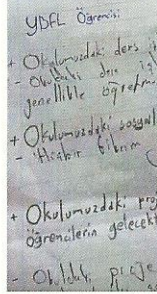 YDFL Öğrencisi
+ Okulumuzdaki ders
- Okuldaki ders
genellikle
+ Okulumuzdaki sosyal
- Hiçbir fikrim
+ Okulumuzdaki
öğrencilerin
- Okuldaki proje